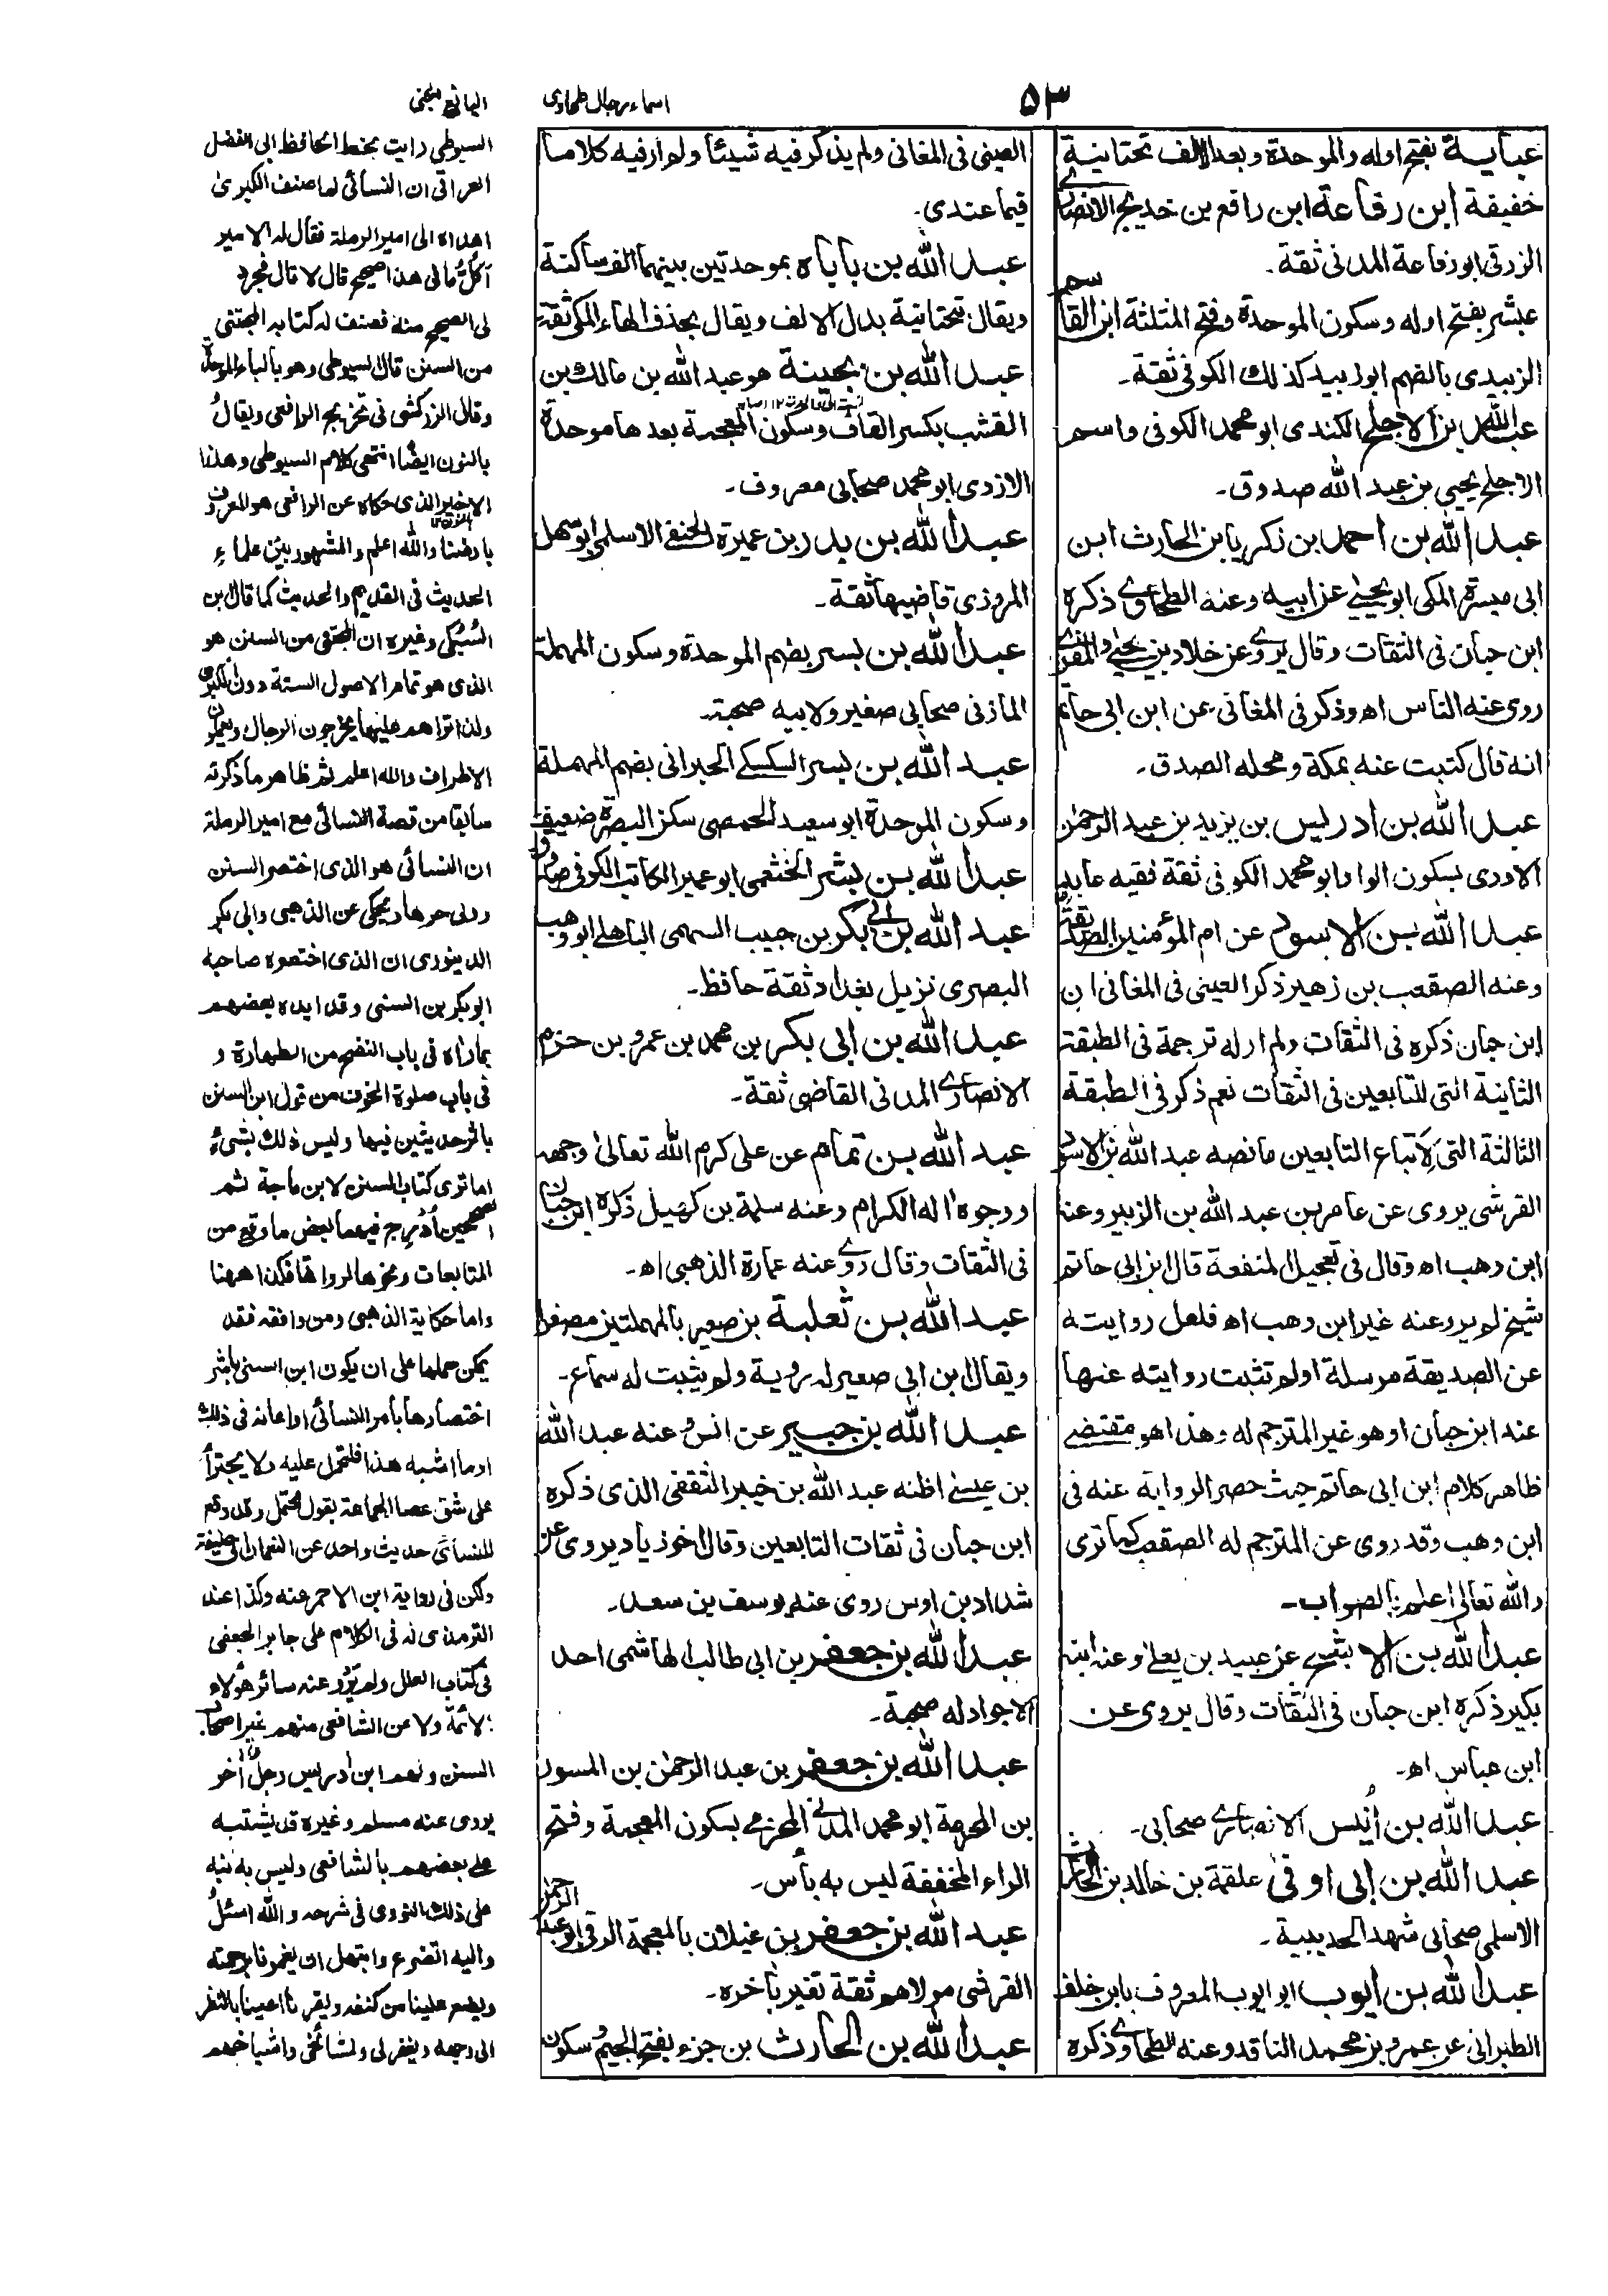 ۵۳
اسماء رجال طحاوی
اليانع الجنی
عباية بفتح اوله والموحدة وبعد الالف تحتانية
خفيفة ابن رفاعة ابن رافع بن خديج الانصاری
الزرقی ابو رفاعة المدنی ثقة۔
عبثر بفتح اوله وسكون الموحدة وفتح المثلثة ابن القاسم
الزبيدی بالضم ابو زبيد كذلك الكوفی ثقة۔
عبدالله بن الاجلح الكندی ابو محمد الكوفی واسم
الاجلح يحيى بن عبد الله صدوق۔
عبدالله بن احمد بن زكريا بن الحارث ابن
ابی ميسرة المكی ابو يحيی عن ابيه وعنه الطحاوی ذكره
ابن حبان فی الثقات وقال يروی عن خلاد بن يحيی والمقری
روی عنه الناس اه وذكر فی المغانی عن ابن ابی حاتم
انه قال كتبت عنه بمكة ومحله الصدق۔
عبدالله بن ادريس بن يزيد بن عبد الرحمٰن
الاودی بسكون الواو ابو محمد الكوفی ثقة فقيه عابد
عبدالله بن الاسود عن ام المؤمنين الصديقة
وعنه الصقعب بن زهير ذكر العينی فی المغانی ان
ابن حبان ذكره فی الثقات ولم ار له ترجمة فی الطبقة
الثانية التی للتابعين فی الثقات نعم ذكر فی الطبقة
الثالثة التی لِاَتباع التابعين ما نصه عبد الله بن الاسود
القرشی يروی عن عامر بن عبد الله بن الزبير وعنه
ابن وهب اه وقال فی تعجيل المنفعة قال ابن ابی حاتم
شيخ لم يرو عنه غير ابن وهب اه فلعل روايته
عن الصديقة مرسلة اولم تثبت روايته عنها
عند ابن حبان او هو غير المترجم له وهذا هو مقتضی
ظاهر كلام ابن ابی حاتم حيث حصر الرواية عنه فی
ابن وهب وقد روی عن المترجم له الصقعب كما تری
والله تعالی اعلم بالصواب۔
عبدالله بن الا عن عبيد بن يعلی وعنه ابنه
بكير ذكره ابن حبان فی الثقات وقال يروی عن
ابن عباس اه۔
عبدالله بن اُنيس الانصاری صحابی۔
عبدالله بن ابی اوفی علقمة بن خالد بن الحارث
الاسلمی صحابی شهد الحديبية۔
عبدالله بن ايوب ابو ايوب المعروف بابن خلف
الطبرانی عن عمرو بن محمد الناقد وعنه الطحاوی ذكره
العينی فی المغانی ولم يذكر فيه شيئا ولم ار فيه كلاما
فيما عندی۔
عبدالله بن باباه بموحدتين بينهما الف ساكنة
ويقال بتحتانية بدل الالف ويقال بحذف الهاء المكی ثقة
عبدالله بن بحينة هو عبد الله بن مالك بن
القشب بكسر القاف وسكون المعجمة بعدها موحدة
الازدی ابو محمد صحابی معروف۔
عبدالله بن بدر بن عميرة الحنفی الاسلمی ابو سهل
المروزی قاضيها ثقة۔
عبدالله بن بسر بضم الموحدة وسكون المهملة
المازنی صحابی صغير ولابيه صحبة۔
عبدالله بن بسر السكسكی الحبرانی بضم المهملة
وسكون الموحدة ابو سعيد الحمصی سكن البصرة ضعيف
عبدالله بن بشر الخثعمی ابو عمير الكاتب الكوفی صدوق
عبدالله بن ابی بكر بن حبيب السهمی الباهلی ابو وهب
البصری نزيل بغداد ثقة حافظ۔
عبدالله بن ابی بكر بن محمد بن عمرو بن حزم
الانصاری المدنی القاضی ثقة۔
عبدالله بن تمام عن علی كرم الله تعالیٰ وجهه
ووجوه اٰله الكرام وعنه سلمة بن كهيل ذكره ابن حبان
فی الثقات وقال روی عنه عمارة الذهبی اه۔
عبدالله بن ثعلبة بن صعير بالمهملتين مصغرا
ويقال ابن ابی صعير له رؤية ولم يثبت له سماع۔
عبدالله بن جبير عن انس وعنه عبد الله
بن عيسی اظنه عبد الله بن خير الثقفی الذی ذكره
ابن حبان فی ثقات التابعين وقال اخو زياد يروی عن
شداد بن اوس روی عنه يوسف بن سعد۔
عبدالله بن جعفر بن ابی طالب الهاشمی احد
الاجواد له صحبة۔
عبدالله بن جعفر بن عبد الرحمٰن بن المسور
بن المخرمة ابو محمد المدنی المخرمی بسكون المعجمة وفتح
الراء المخففة ليس به بأس۔
عبدالله بن جعفر بن غيلان بالمعجمة الرقی ابو عبد الرحمٰن
القرشی مولاهم ثقة تغير بآخره۔
عبدالله بن الحارث بن جزء بفتح الجيم وسكون
السيوطی رايت بخط الحافظ ابی الفضل
العراقی ان النسائی لما صنف الكبریٰ
اهداه الی امير الرملة فقال له الامير
اَكُلُّ ما فی هذا صحيح قال لا قال فجرد
لی الصحيح منه فصنف له كتابه المجتنی
من السنن قال السيوطی وهو بالباء الموحدة
وقال الزركشی فی تخريج الرافعی ويقالُ
بالنون ايضًا انتهی كلام السيوطی وهذا
الاخير الذی حكاه عن الرافعی هو المعروف
بارضنا والله اعلم والمشهور بين علماء
الحديث فی القديم والحديث كما قال ابن
السُّبُكی وغيره ان المجتنی من السنن هو
الذی هو تمام الاصول الستة دون الكبری
ولذا تراهم عليها يخرجون الرجال ويعملون
الاطراف والله اعلم ثم ظاهر ما ذكرته
سابقا من قصة النسائی مع امير الرملة
ان النسائی هو الذی اختصر السنن
وولی حرها ويحكی عن الذهبی وابی بكر
الدينوری ان الذی اختصره صاحبه
ابو بكر بن السنی وقد ايده بعضهم
بما رٰاه فی باب النضح من الطهارة و
فی باب صلوة الخوف من قول ابن السنی
بالزحديثين فيها وليس ذلك بشیء
اما تری كتاب السنن لابن ماجة ثم
الصحيحين اُدرِج فيهما بعض ما وقع من
المتابعات ونحوها لرواتها فكذا ههنا
واما حكاية الذهبی ومن وافقه فقد
يمكن حملها علی ان يكون ابن السنی باشر
اختصارها بأمر النسائی او اعانه فی ذلك
او ما اشبه هذا فلتحمل عليه ولا يجترأ
علی شق عصا الجماعة بقول محتمل وقد وقع
للنسائی حديث واحد عن النعمان ابی حنيفة
ولكن فی رواية ابن الاحمر عنه وكذا عند
الترمذی له فی الكلام علی جابر الجعفی
فی كتاب العلل ولم يَرْوِ عنه سائر هؤلاء
الائمة ولا عن الشافعی منهم غير اصحاب
السنن ونعم ابن ادريس رجلٌ اٰخر
يروی عنه مسلم وغيره قد يشتبه
علی بعضهم بالشافعی وليس به نبه
علی ذلك النووی فی شرحه والله اسئلُ
واليه اتضرع وابتهل ان يغمرنا برحمته
ويضع علينا من كنفه ويقر باعيننا بالنظر
الی وجهه ويغفر لی ولمشائخی واشياخهم